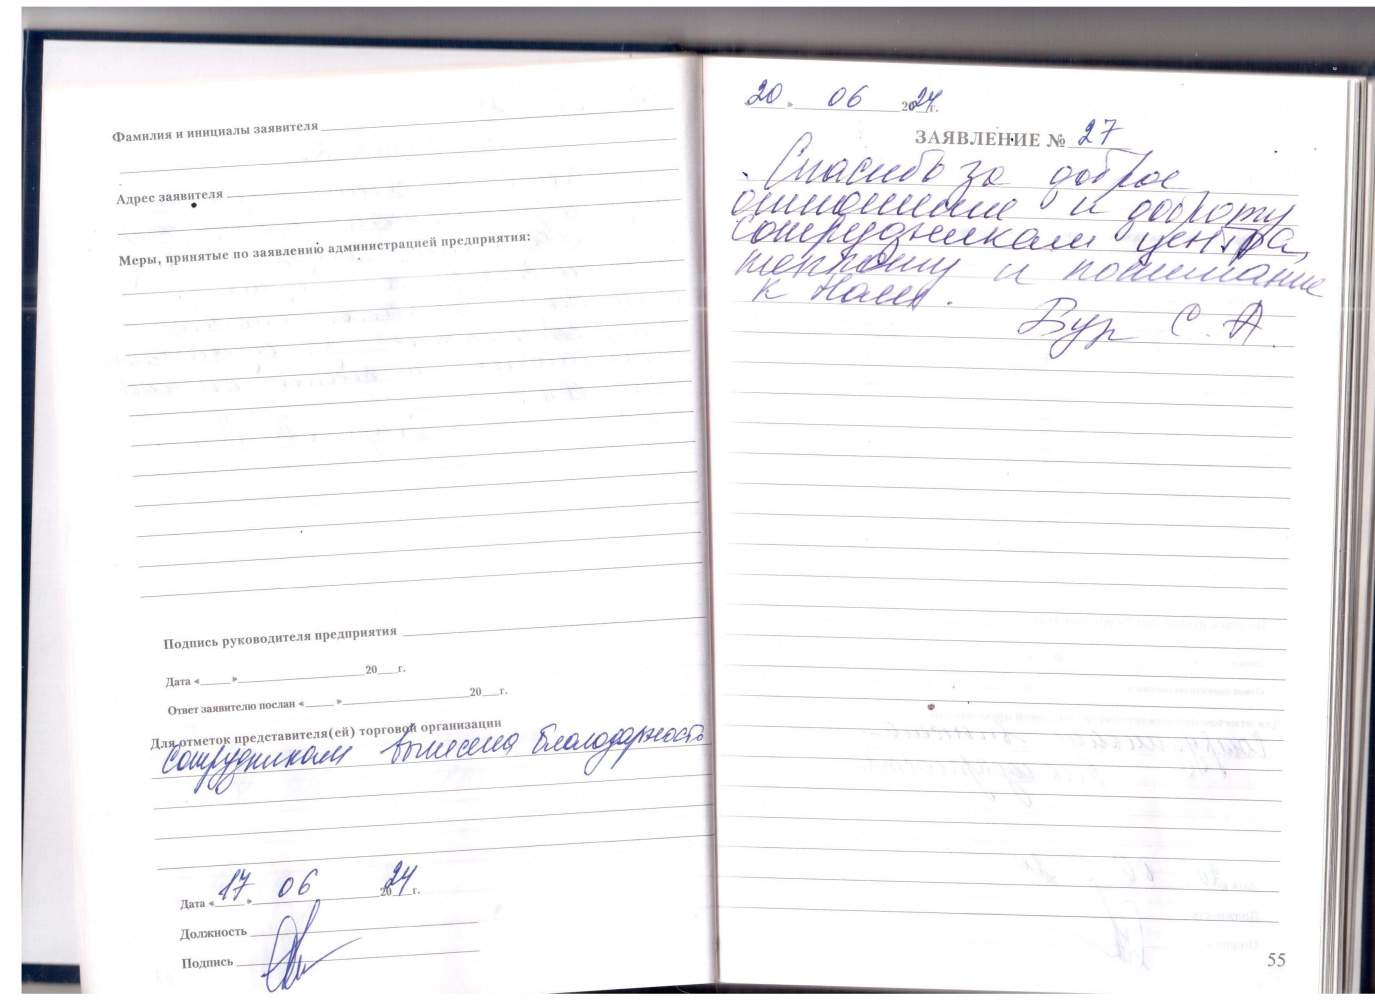 Фамилия и инициалы заявителя
Адрес заявителя
Меры, принятые по заявлению администрацией предприятия:
Подпись руководителя предприятия
Дата «____»____ 20___г.
Ответ заявителю послан «____»____ 20___г.
Для отметок представителя(ей) торговой организации
Сотрудникам вынесена благодарность
Дата «17» 06 2024 г.
Должность
Подпись
20 » 06 2024 г.
ЗАЯВЛЕНИЕ № 27
Спасибо за доброе
отношение и доброту
сотрудникам центра,
и понимание
к нам.
Бур С. А.
55